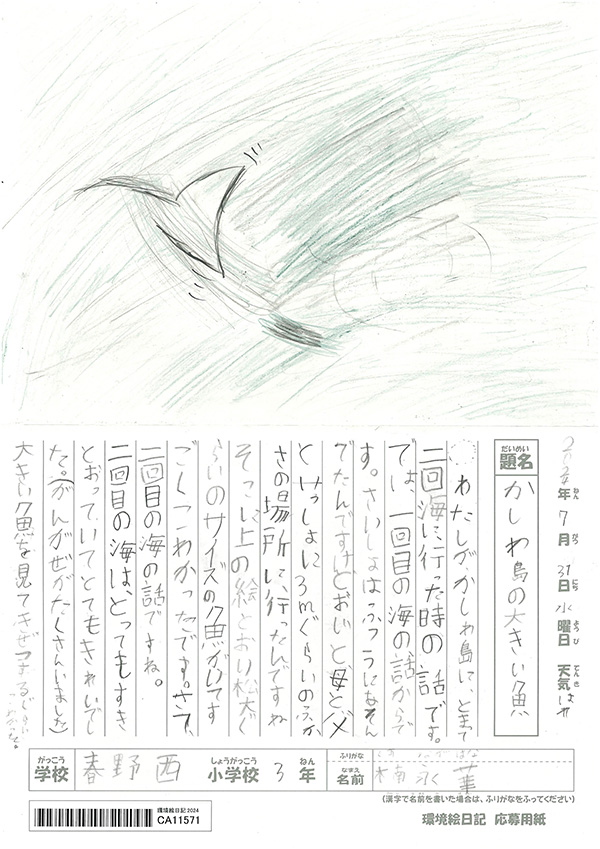 2024年7月31日水曜日 天気 はれ
ねん がつ にち ようび てんき
だいめい
題名 かしわ島の大きい魚
わたしが、かしわ島に、とまって
二回海に行った時の話です。
では、一回目の海の話からで
す。さいしょはふつうにあそん
でたんですけどおじと母と父
といっしょに3mぐらいのふか
さの場所に、行ったんですね
そこに上の絵とおり松大ぐ
らいのサイズの魚がいてす
ごくこわかったです。さて、
二回目の海の話ですね。
二回目の海は、とってもすき
とおっていてとてもきれいでし
た。(がんがぜがたくさんいました)
大きい魚を見てきぜつするぐらい
がっこう しょうがっこう ねん ふりがな
学校 春野西 小学校 3年 なまえ 名前 楠 永 華
(漢字で名前を書いた場合は、ふりがなをふってください)
環境絵日記2024
CA11571
環境絵日記 応募用紙